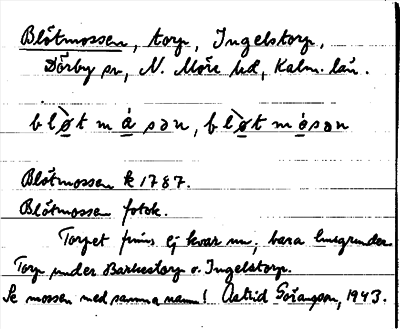 Blötmossen, torp, Ingelstorp,
Dörby sn, N. Möre hd, Kalm. län.
blø̀tmåsən, blø̀tmósən
Blötmossen k 1787.
Blötmossen fotok.
Torpet finns ej kvar nu, bara husgrunden
Torp under Barkestorp o. Ingelstorp.
Se mossen med samma namn! Astrid Göransson, 1943.